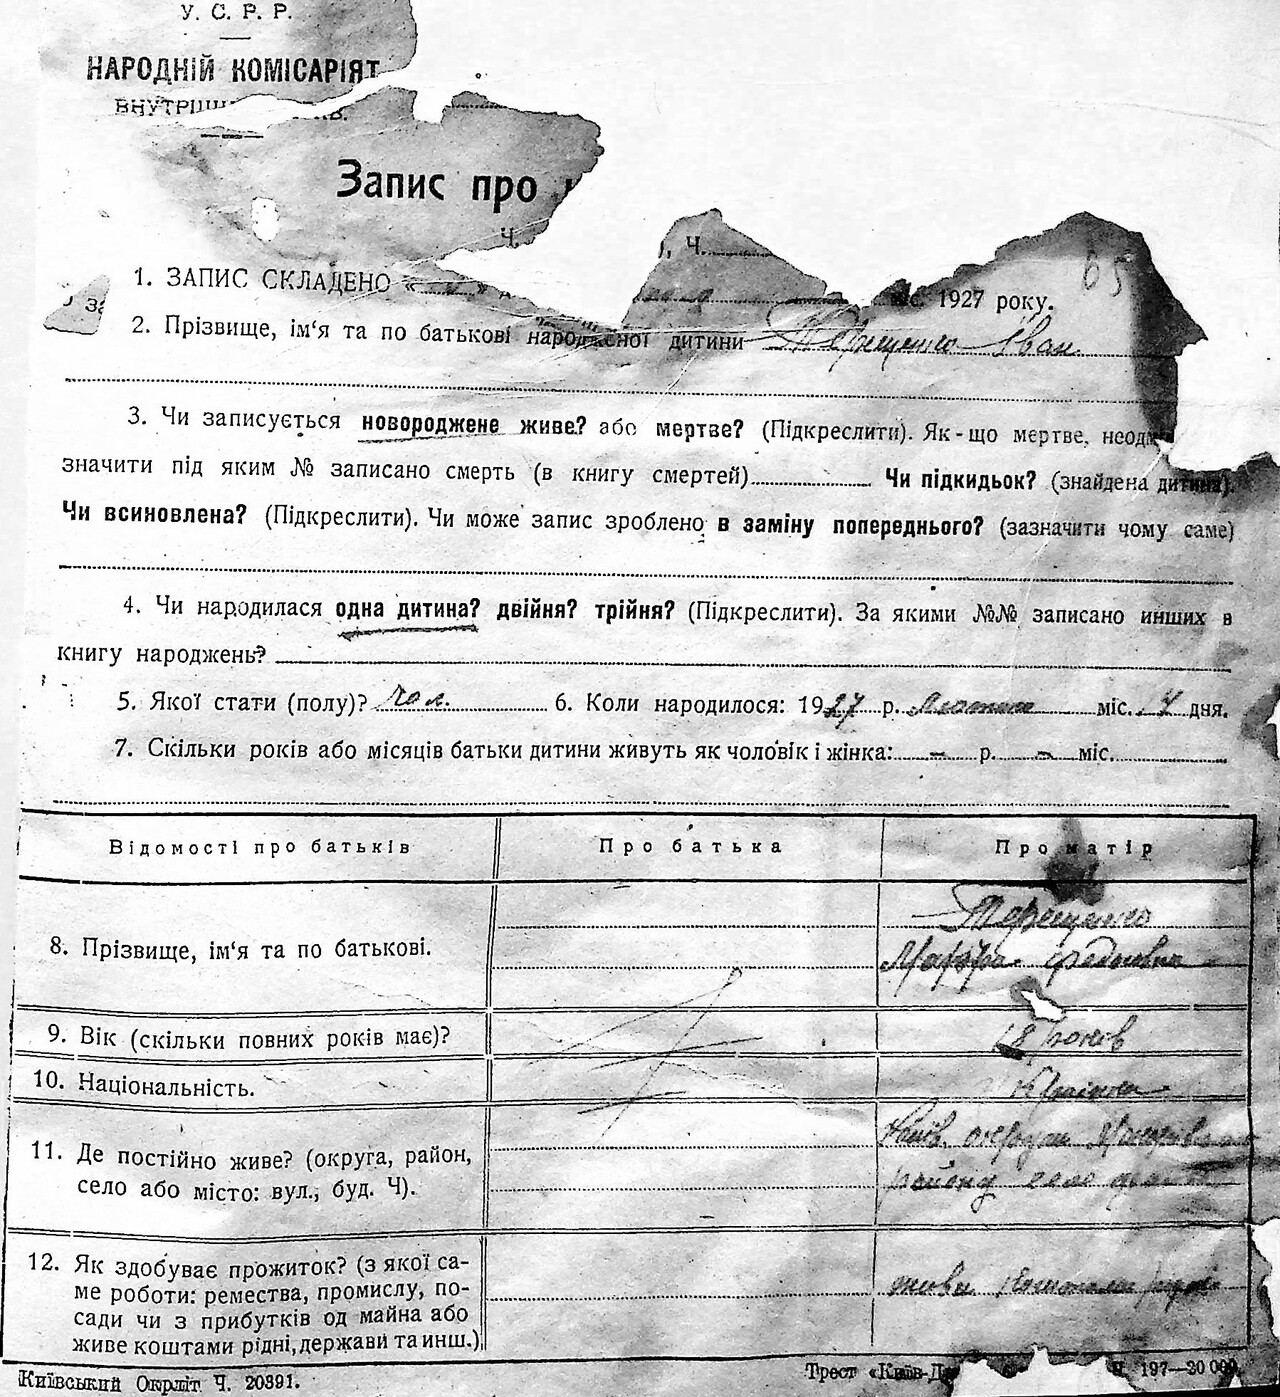 У. С. Р. Р.
НАРОДНІЙ КОМІСАРІЯТ
Запис про
Ч. , Ч.
65
1. ЗАПИС СКЛАДЕНО « » 1927 року.
2. Прізвище, ім‘я та по батькові народженої дитини Терещенко Іван
3. Чи записується новороджене живе? або мертве? (Підкреслити). Як-що мертве,
значити під яким № записано смерть (в книгу смертей) Чи підкидьок? (знайдена дитина).
Чи всиновлена? (Підкреслити). Чи може запис зроблено в заміну попереднього? (зазначити чому саме)
4. Чи народилася одна дитина? двійня? трійня? (Підкреслити). За якими №№ записано инших в
книгу народжень?
5. Якої стати (полу)? чол. 6. Коли народилося: 1927 р. міс. 14 дня.
7. Скільки років або місяців батьки дитини живуть як чоловік і жінка: – р. – міс.
Відомості про батьків Про батька Про матір
8. Прізвище, ім‘я та по батькові. Терещенко
Марфа Федоровна
9. Вік (скільки повних років має)? 18 років
10. Національність.
11. Де постійно живе? (округа, район,
село або місто: вул., буд. Ч).
Київ. округи
району село
12. Як здобуває прожиток? (з якої са-
ме роботи: ремества, промислу, по-
сади чи з прибутків од майна або
живе коштами рідні, держави та инш.)
Київський Окрліт Ч. 20391. Трест «Київ-Д 197—30 000